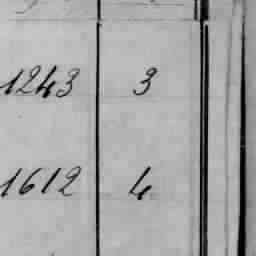 1243 3
1612 4